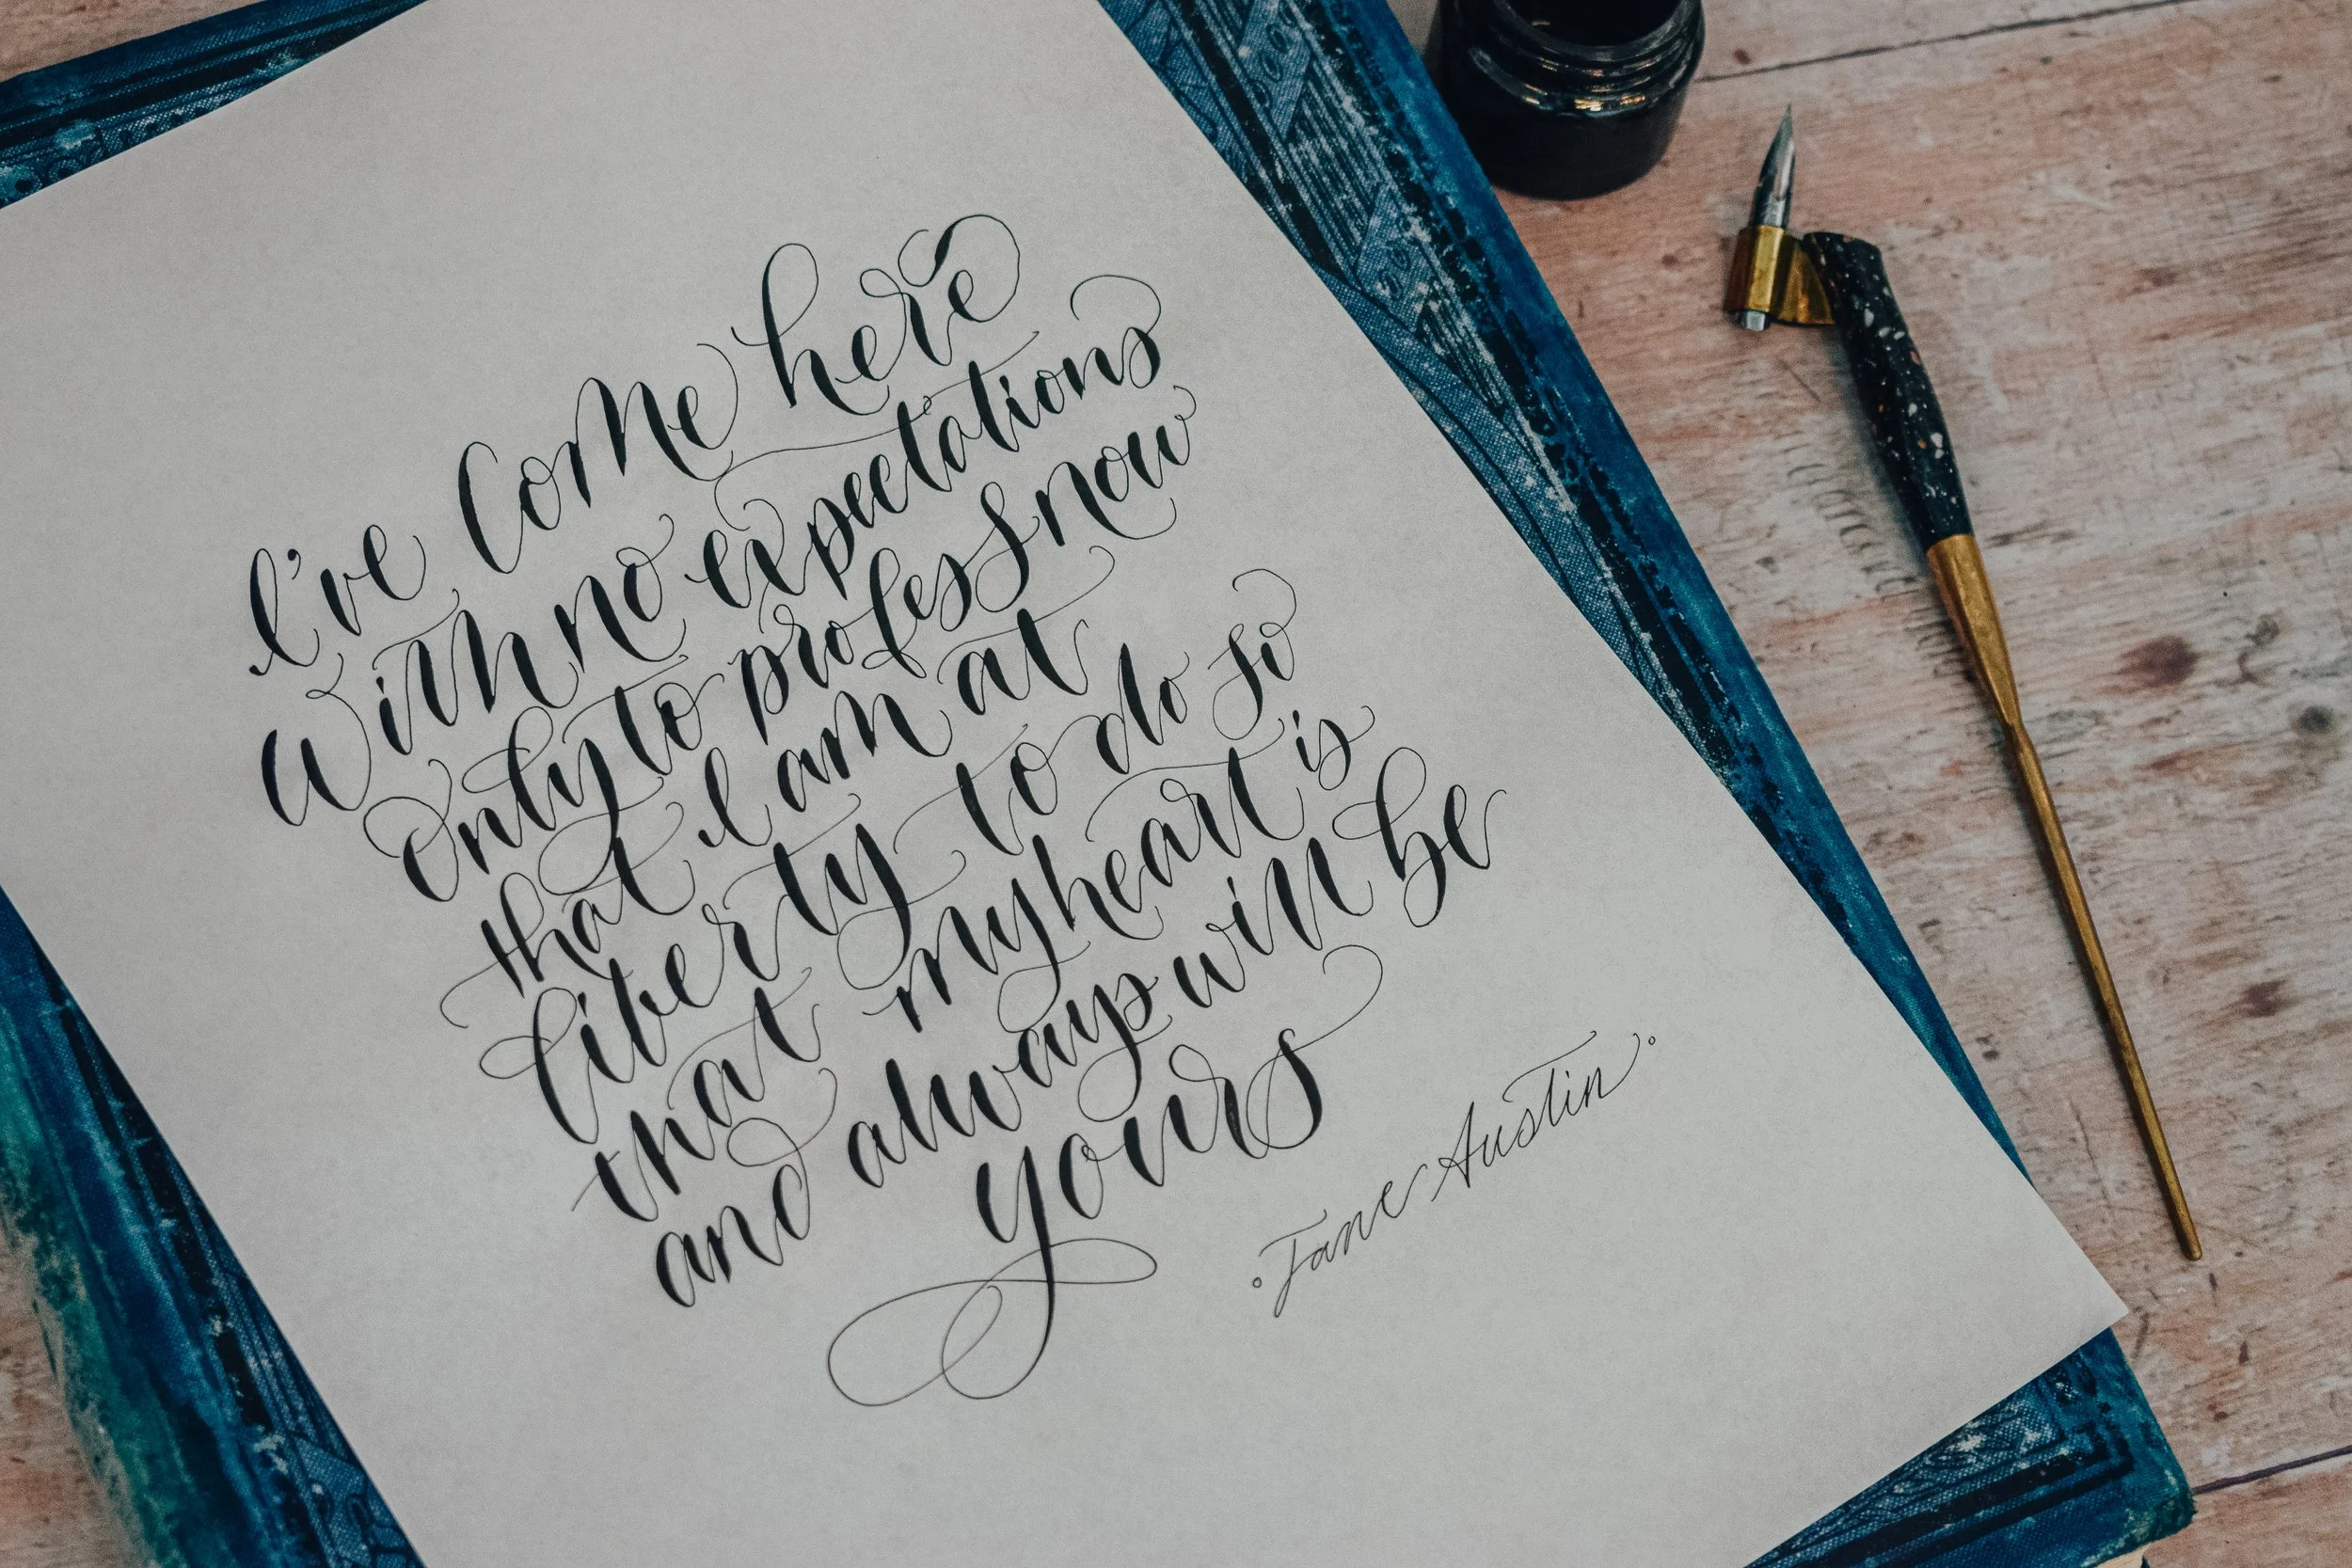 I've come here
with no expectations
only to profess now
that I am at
liberty to do so
that my heart is
and always will be
yours
Jane Austin